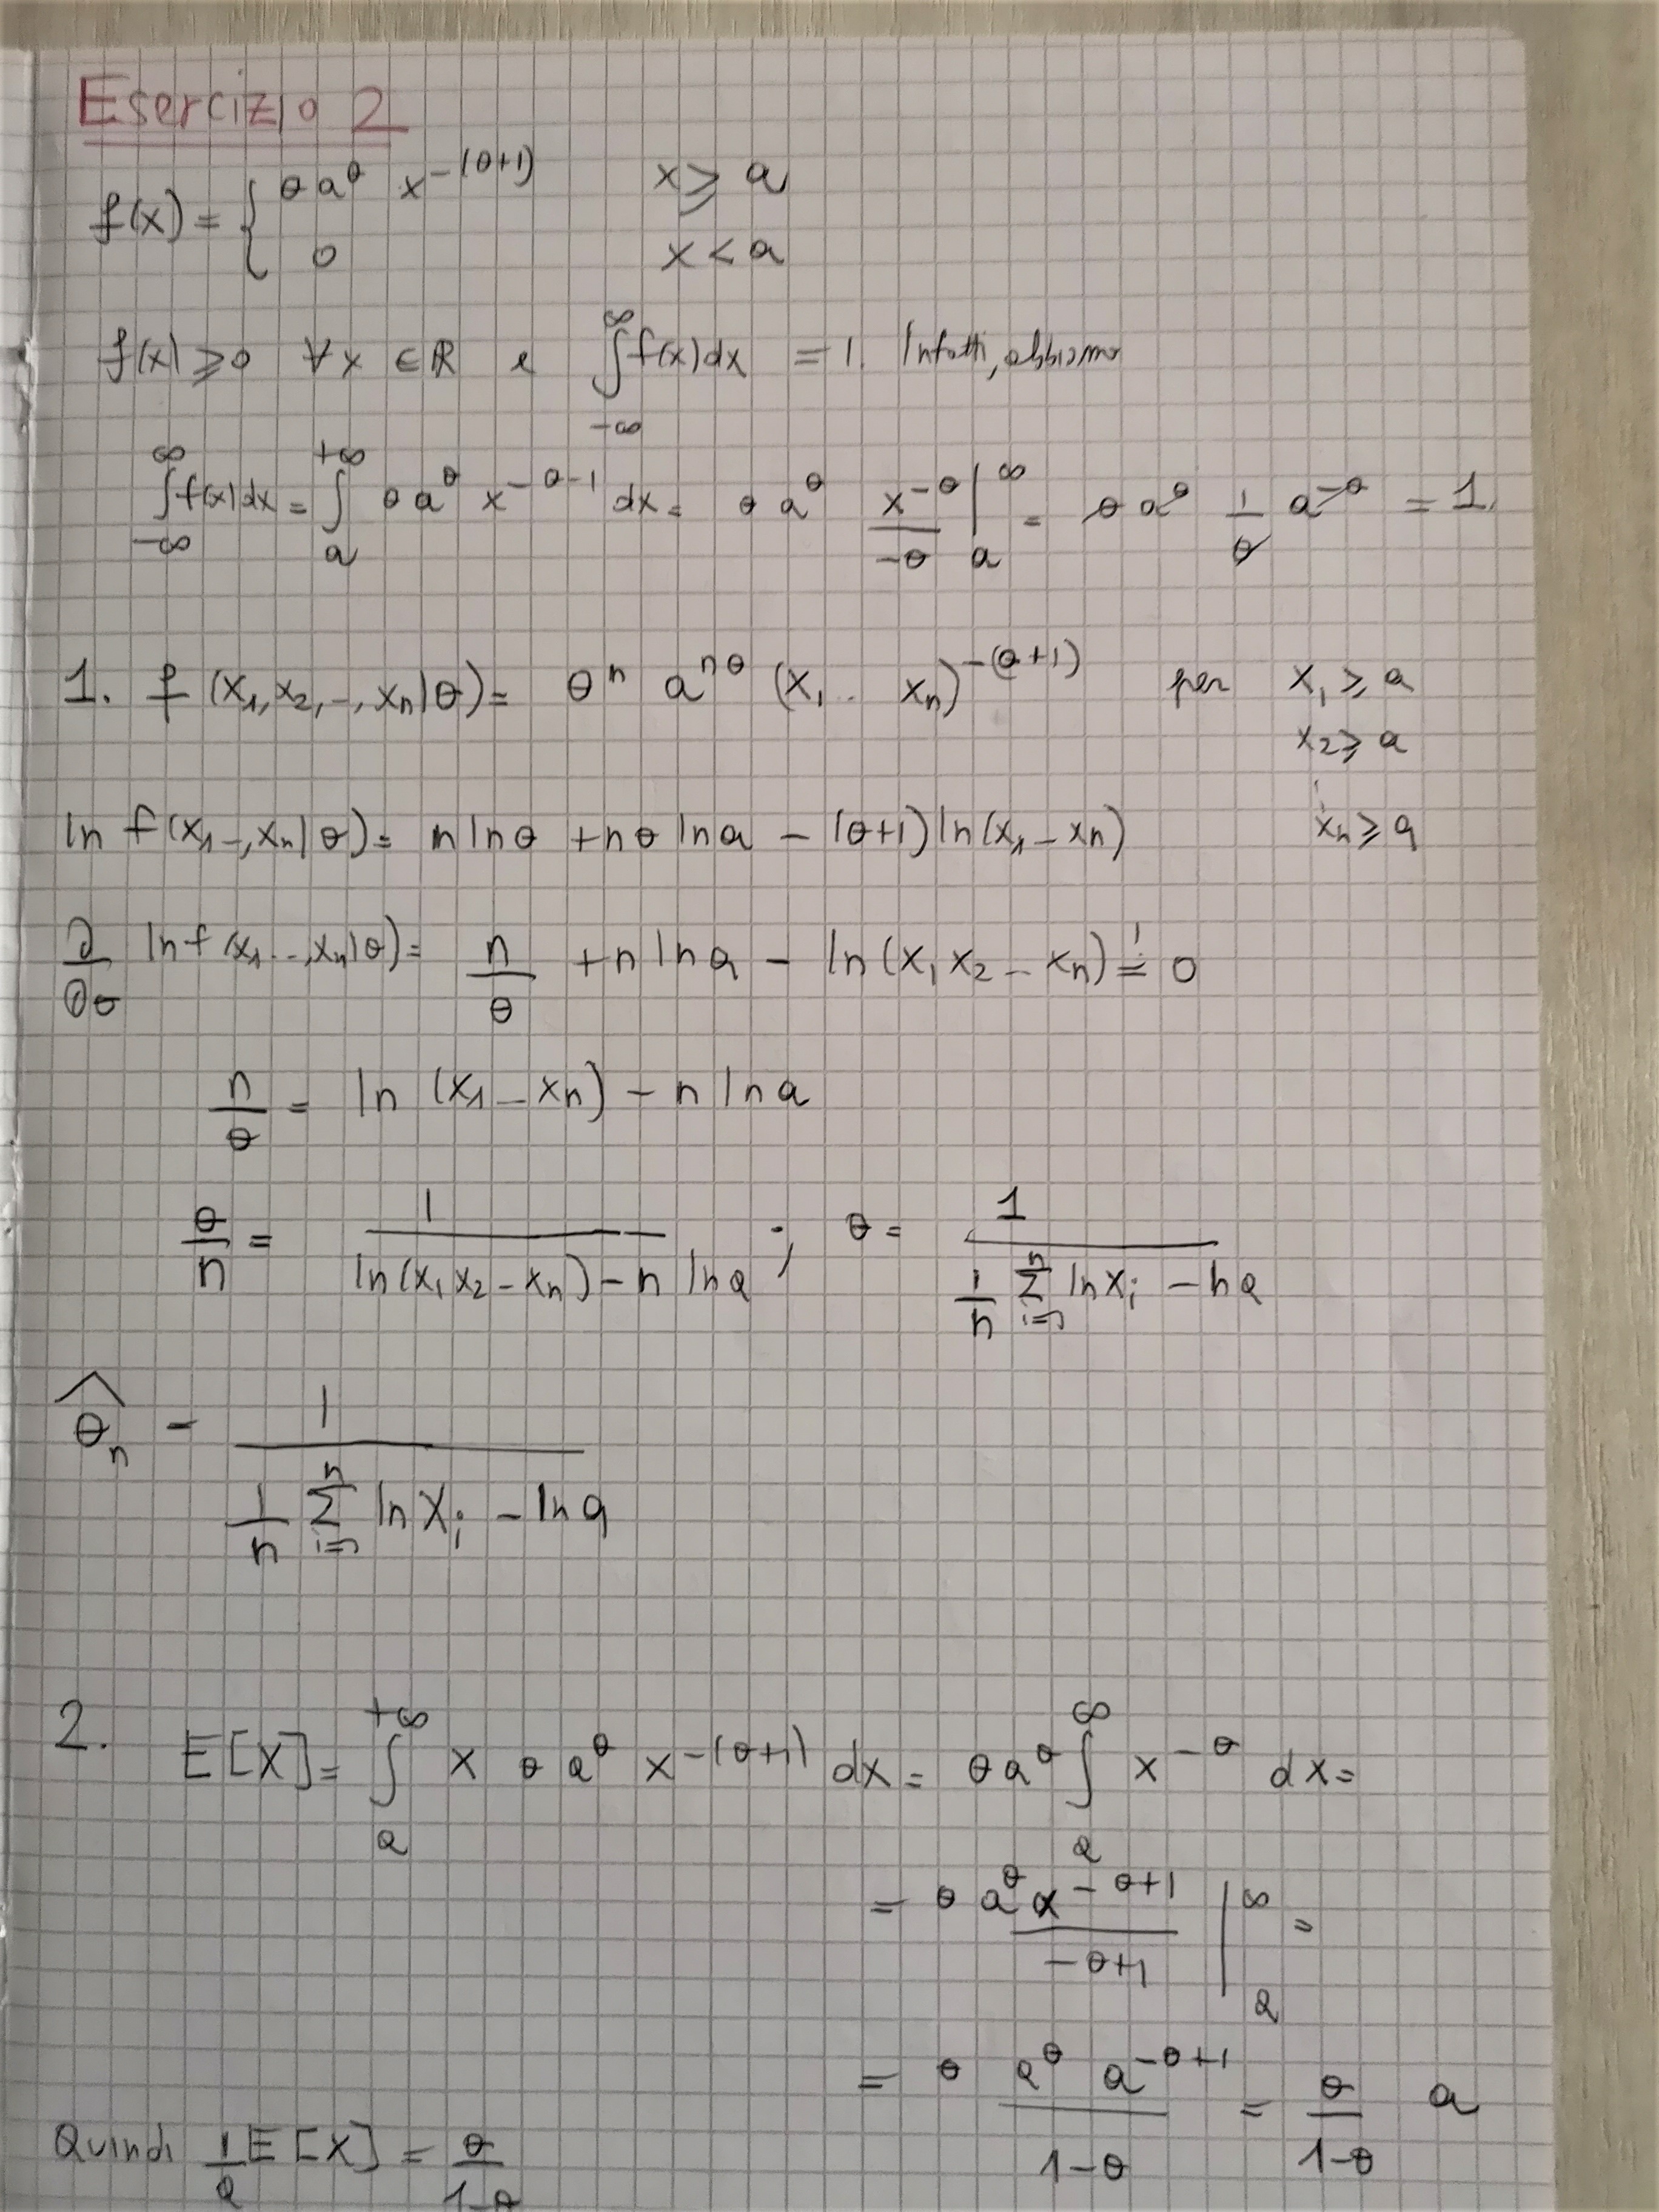 Esercizio 2
f(x) = { θ a^θ x^-(θ+1) x ≥ a
0 x < a
f(x) ≥ 0 ∀x ∈ ℝ e ∫_{-∞}^{∞} f(x)dx = 1. Infatti, abbiamo
∫_{-∞}^{∞} f(x)dx = ∫_a^{+∞} θ a^θ x^{-θ-1} dx = θ a^θ x^{-θ}/-θ |_a^∞ = θ a^θ 1/θ a^{-θ} = 1.
1. f(x₁,x₂,-,xₙ|θ) = θ^n a^{nθ} (x₁.. xₙ)^{-(θ+1)} per x₁ ≥ a
x₂ ≥ a
⋮
ln f(x₁-,xₙ|θ) = n ln θ + nθ ln a - (θ+1) ln(x₁-xₙ) xₙ ≥ a
∂/∂θ ln f(x₁..,xₙ|θ) = n/θ + n ln a - ln(x₁x₂-xₙ) =! 0
n/θ = ln (x₁-xₙ) - n ln a
θ/n = 1/(ln(x₁x₂-xₙ) - n ln a) ; θ = 1/(1/n Σ_{i=1}^n ln xᵢ - ha)
θ̂ₙ = 1/(1/n Σ_{i=1}^n ln Xᵢ - ln a)
2. E[X] = ∫_a^{+∞} x θ a^θ x^{-(θ+1)} dx = θ a^θ ∫_a^∞ x^{-θ} dx =
= θ a^θ x^{-θ+1}/-θ+1 |_a^∞ =
= θ a^θ a^{-θ+1}/1-θ = θ/1-θ a
Quindi 1/a E[X] = θ/1-θ